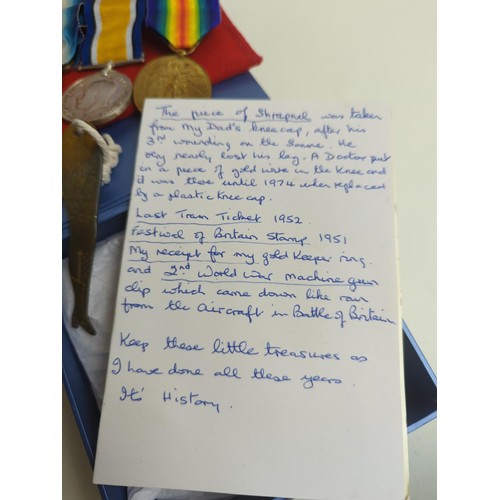 The piece of Shrapnel was taken
from My Dad's kneecap, after his
3rd wounding on the Somme. He
very nearly lost his leg. A Doctor put
in a piece of gold wire in the knee and
it was there until 1974 when replaced
by a plastic knee cap.
Last Tram Ticket 1952.
Festival of Britain Stamp 1951
My receipt for my gold Keeper ring.
and 2nd World War Machine gun
clip which came down like rain
from the aircraft in Battle of Britain
Keep these little treasures as
I have done all these years.
It's History.